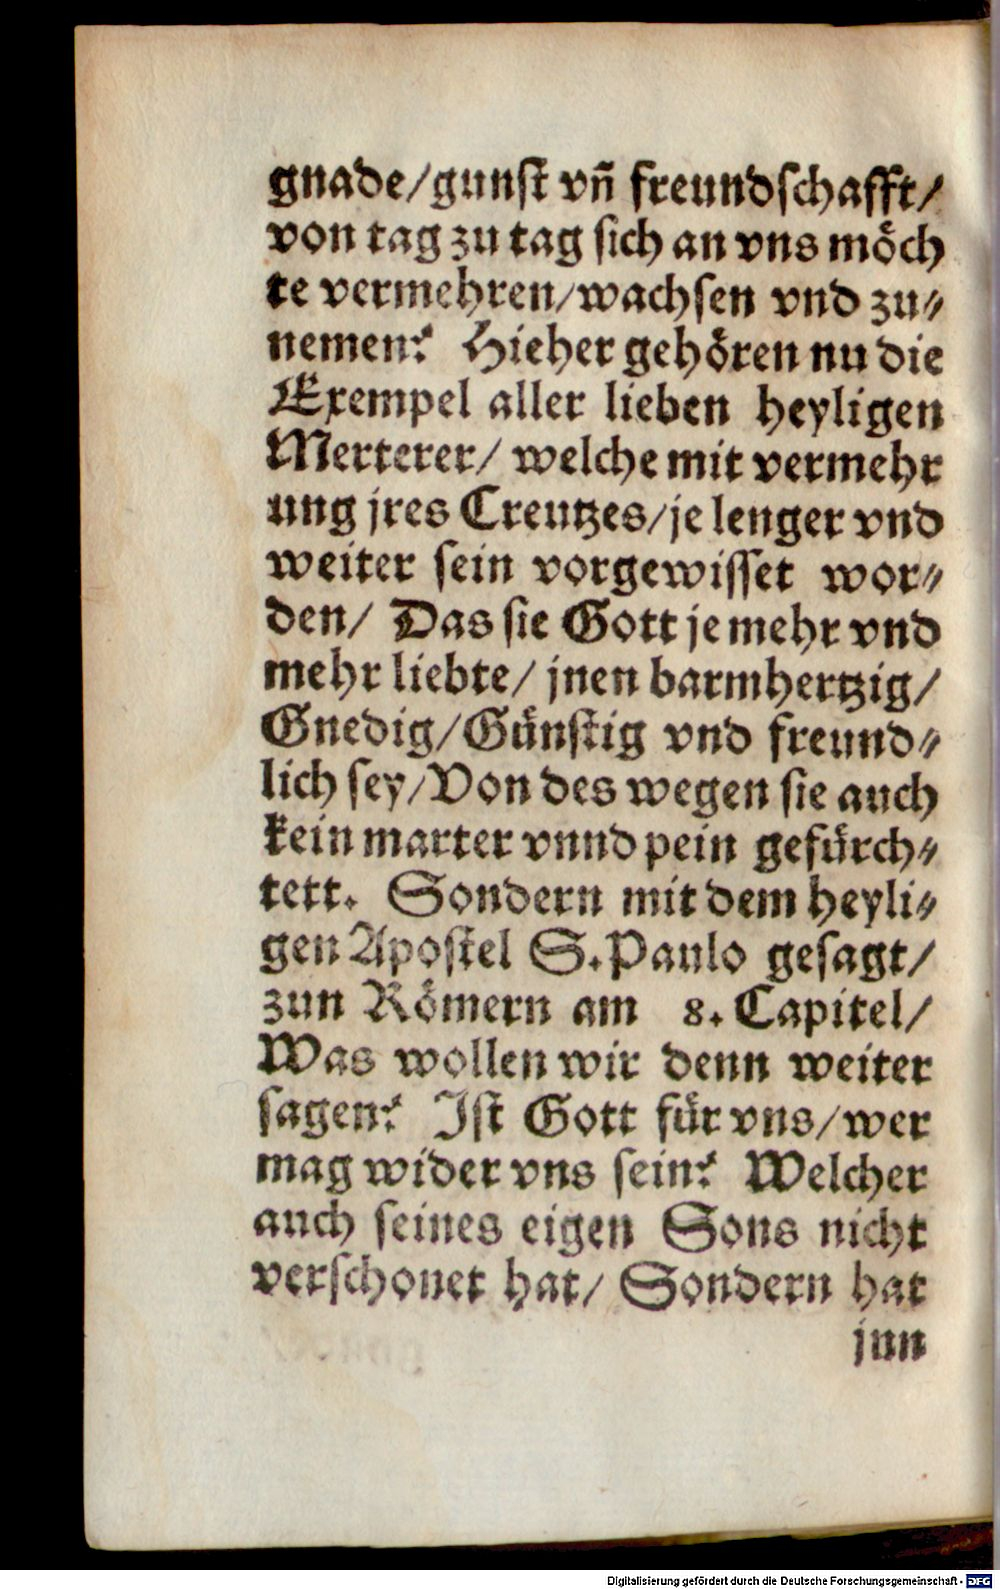 gnade/gunst vñ freundschafft/
von tag zu tag sich an vns möch
te vermehren/wachsen vnd zu⸗
nemen? Hieher gehören nu die
Exempel aller lieben heyligen
Merterer/ welche mit vermehr
ung jres Creutzes/je lenger vnd
weiter sein vorgewisset wor⸗
den/ Das sie Gott je mehr vnd
mehr liebte/ jnen barmhertzig/
Gnedig/Günstig vnd freund⸗
lich sey/Von des wegen sie auch
kein marter vnnd pein gefürch⸗
tett. Sondern mit dem heyli⸗
gen Apostel S. Paulo gesagt/
zun Römern am 8. Capitel/
Was wollen wir denn weiter
sagen? Ist Gott für vns/wer
mag wider vns sein? Welcher
auch seines eigen Sons nicht
verschonet hat/ Sondern hat
jun
Digitalisierung gefördert durch die Deutsche Forschungsgemeinschaft - DFG